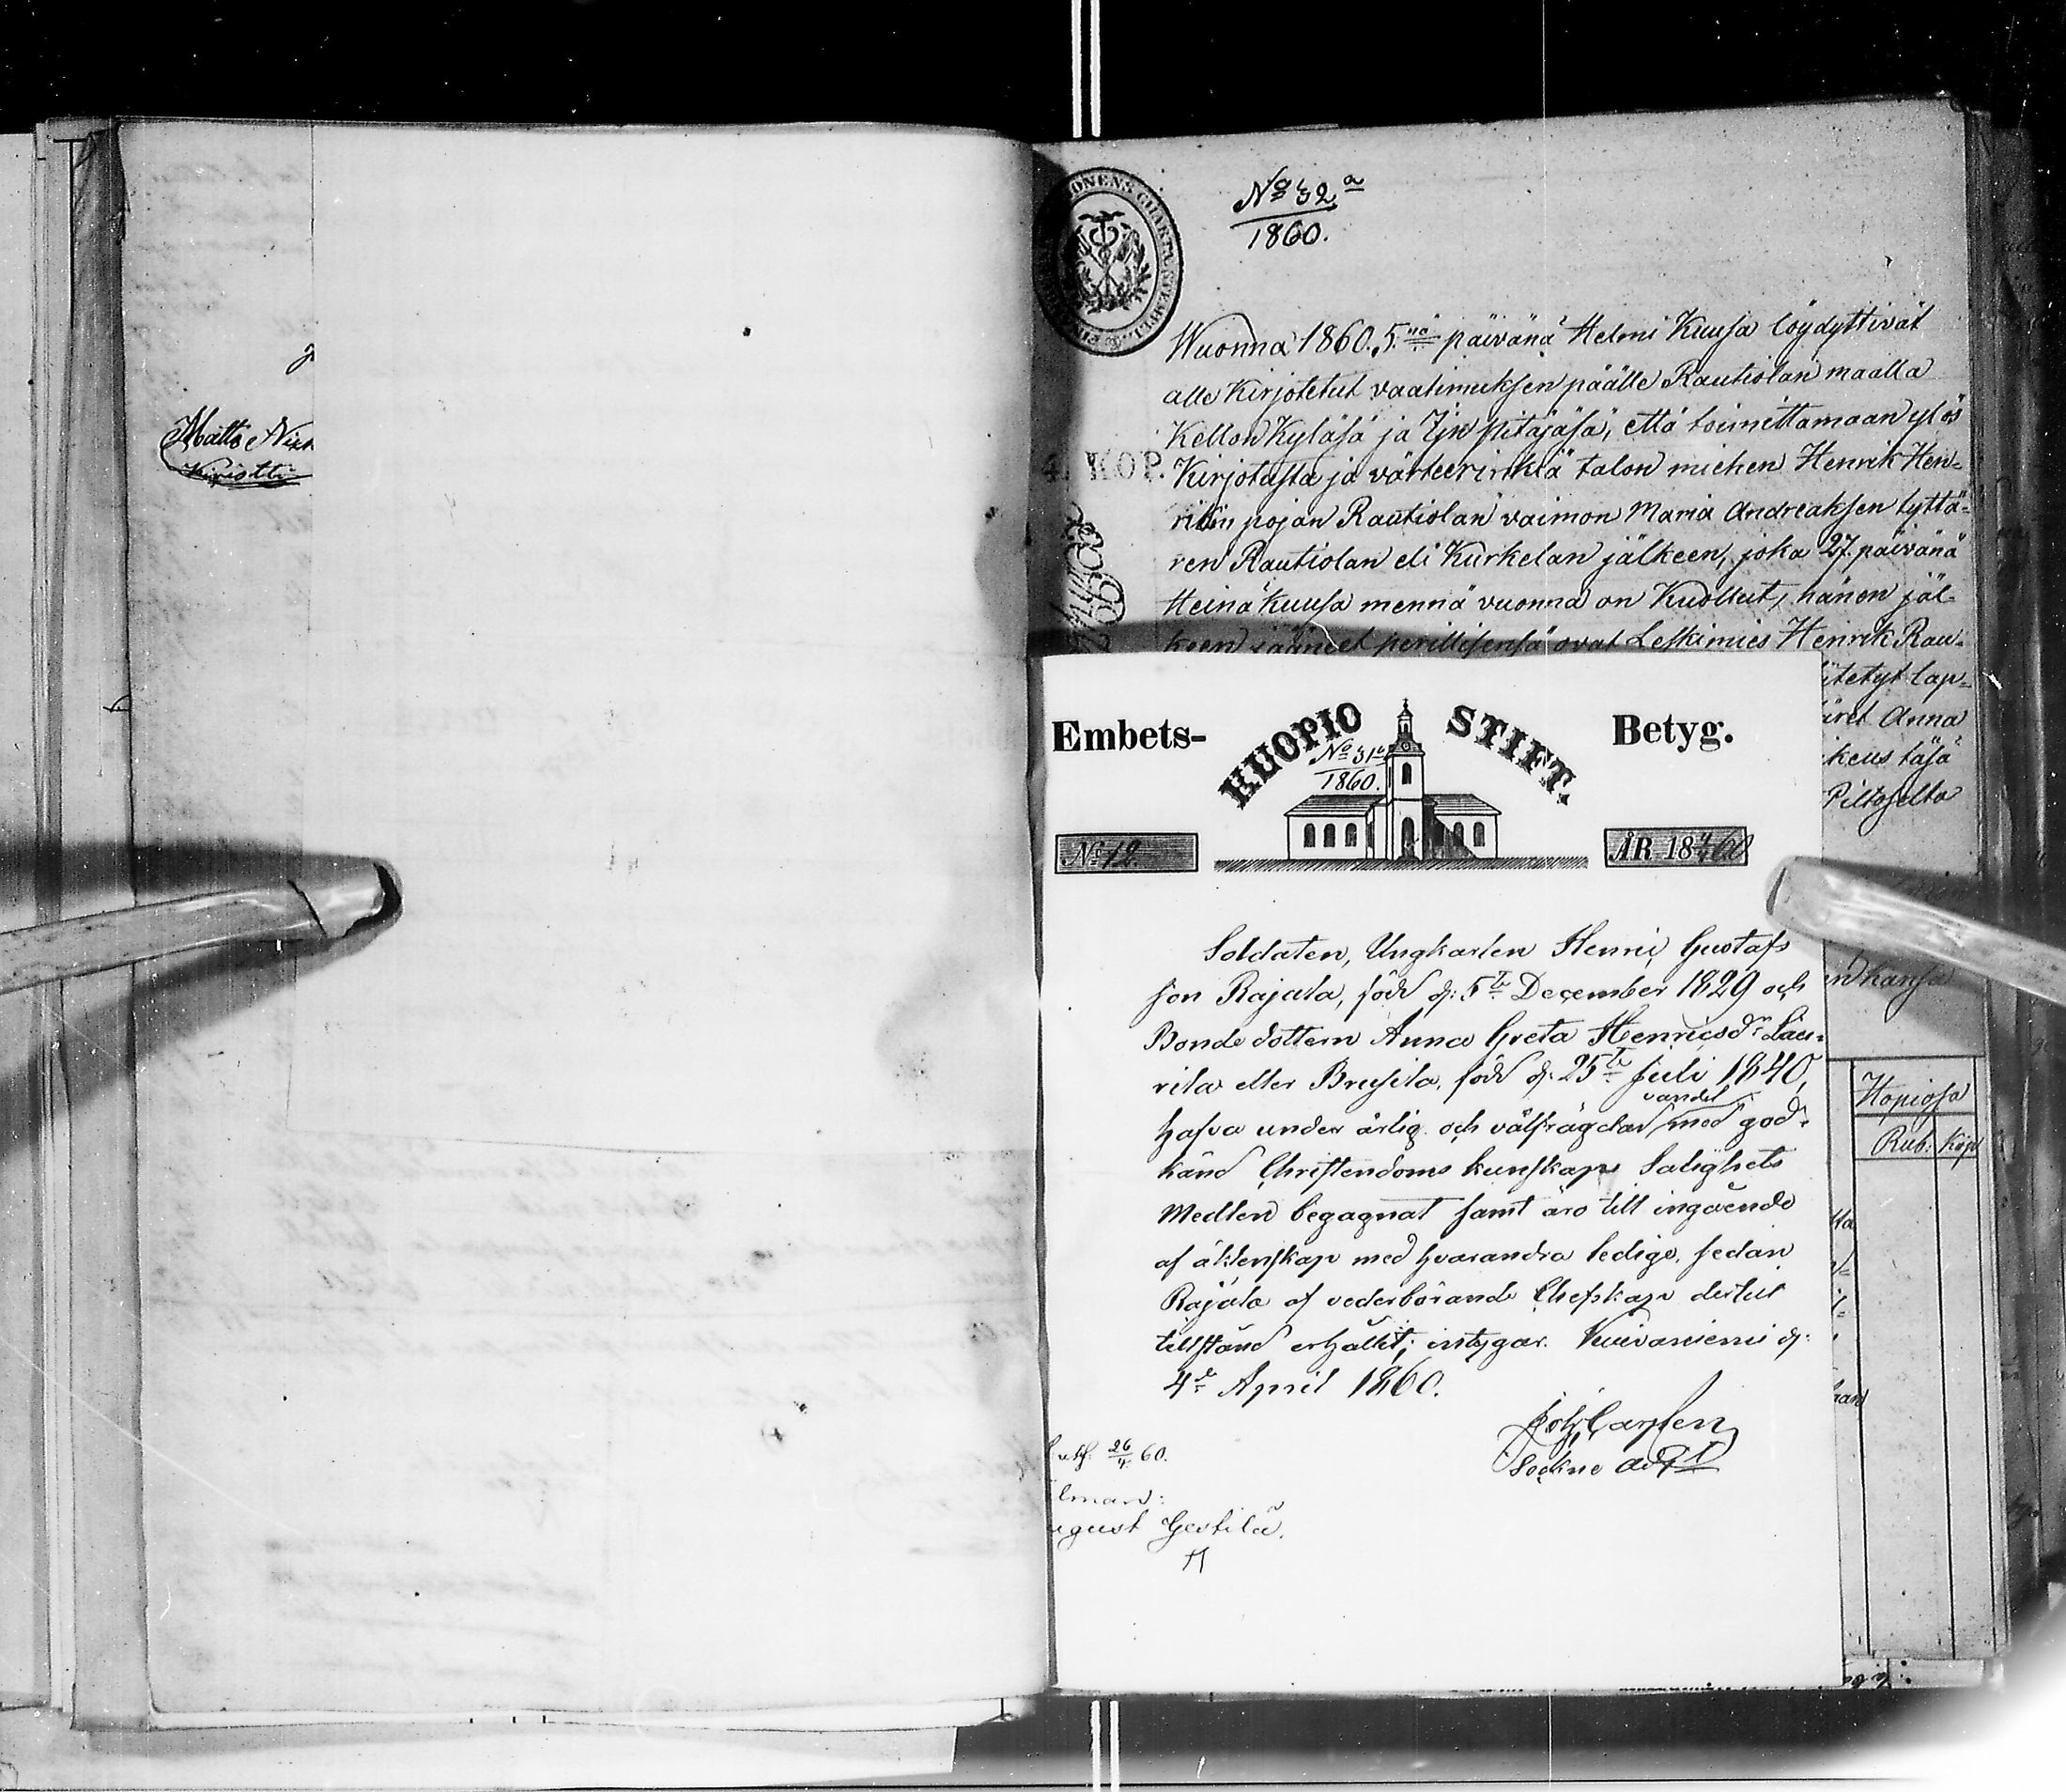 Matts
Kiristti
No 32a
1860.
4. KOP.
Wuonna 1860. 5:nä päivänä Helmi Kuusa löydyttivät
alle Kirjotetut vaatimuksen päälle Rautiolan maalla
Kellon Kyläsä ja Ijn pitäjäsä, että toimittamaan ylös
Kirjotusta ja värteerinkiä talon miehen Henrik Hen-
rikin pojan Rautiolan vaimon Maria Andreaksen tyttä-
ren Rautiolan eli Kurkelan jälkeen, joka 27. päivänä
Heinä Kuusa mennä vuonna on Kuollut, hänen jäl-
keen jäänet perillisensä ovat Leskimies Henrik Rau-
itetyt lap-
äret Anna
ikeus täsä
Piltoselta
kansa
Hopiosa
Rub: Kop
Embets-
KUOPIO STIFT.
Betyg.
No 31b
1860.
No 12
ÅR 1860
Soldaten, Ungkarlen Henric Gustafs
son Rajala, född d: 5te December 1829 och
Bonde dottern Anna Greta Henricsdr Lau-
rila eller Brusila, född d: 25te Juli 1840,
vandel
hafva under ärlig och välfrägdad med god-
känd Christendoms kunskap Salighets
Medlen begagnat samt äro till ingående
af äktenskap med hvarandra ledige, sedan
Rajala af vederbörande Chefskap dertill
tillstånd erhållit; intygar. Kuivaniemi d:
4de April 1860.
Joh. Carlsen
26/4 60.
lman:
ugust Gestilä.